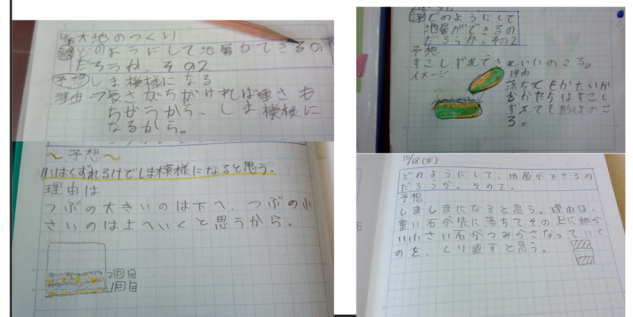 大地のつくり
どのようにして地層ができるの
だろうか。その2
予想 しま模様になる
理由 さがちがければ重さも
ちがうから、しま模様に
なるから。
〜予想〜
はくずれるけどしま模様になると思う。
理由は
つぶの大きいのは下へ、つぶの小
さいのは上へいくと思うから。
2回目
1回目
どのようにして
地層ができるの
だろうか。その2
予想
すこしずれてきれいにのこる。
イメージ 理由
落ちてもかたいか
らかたちはすこし
ずれてもがらはのこ
る。
10/18(水)
どのようにして、地層ができるの
だろうか。その2。
予想
しましまになると思う。理由は、
重い石が先に落ちてその上に細か
い小さい石がつみかさなっていく
のを、くり返すと思う。